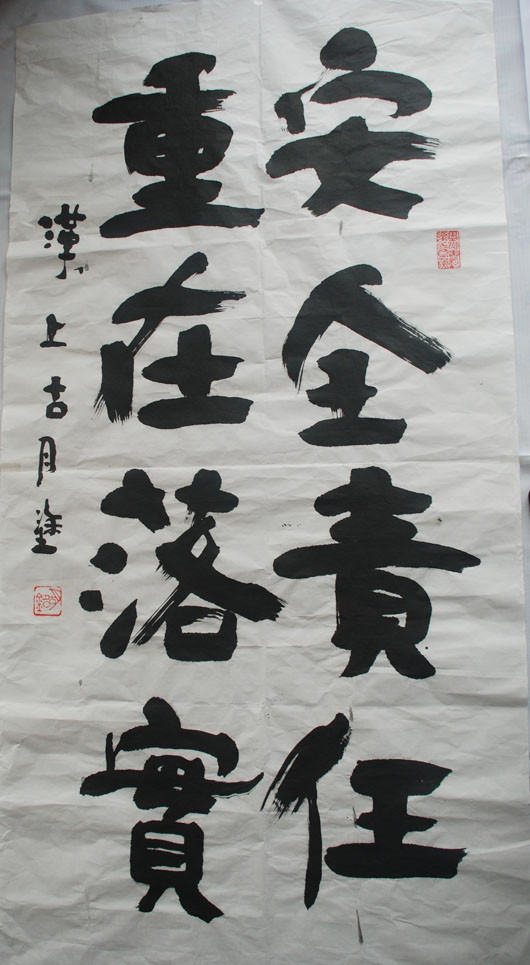 安全責任
重在落實
漢上古月塗